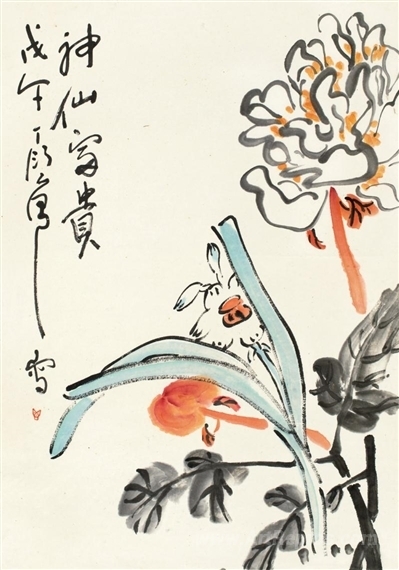 神仙富貴
戊午丁衍庸寫